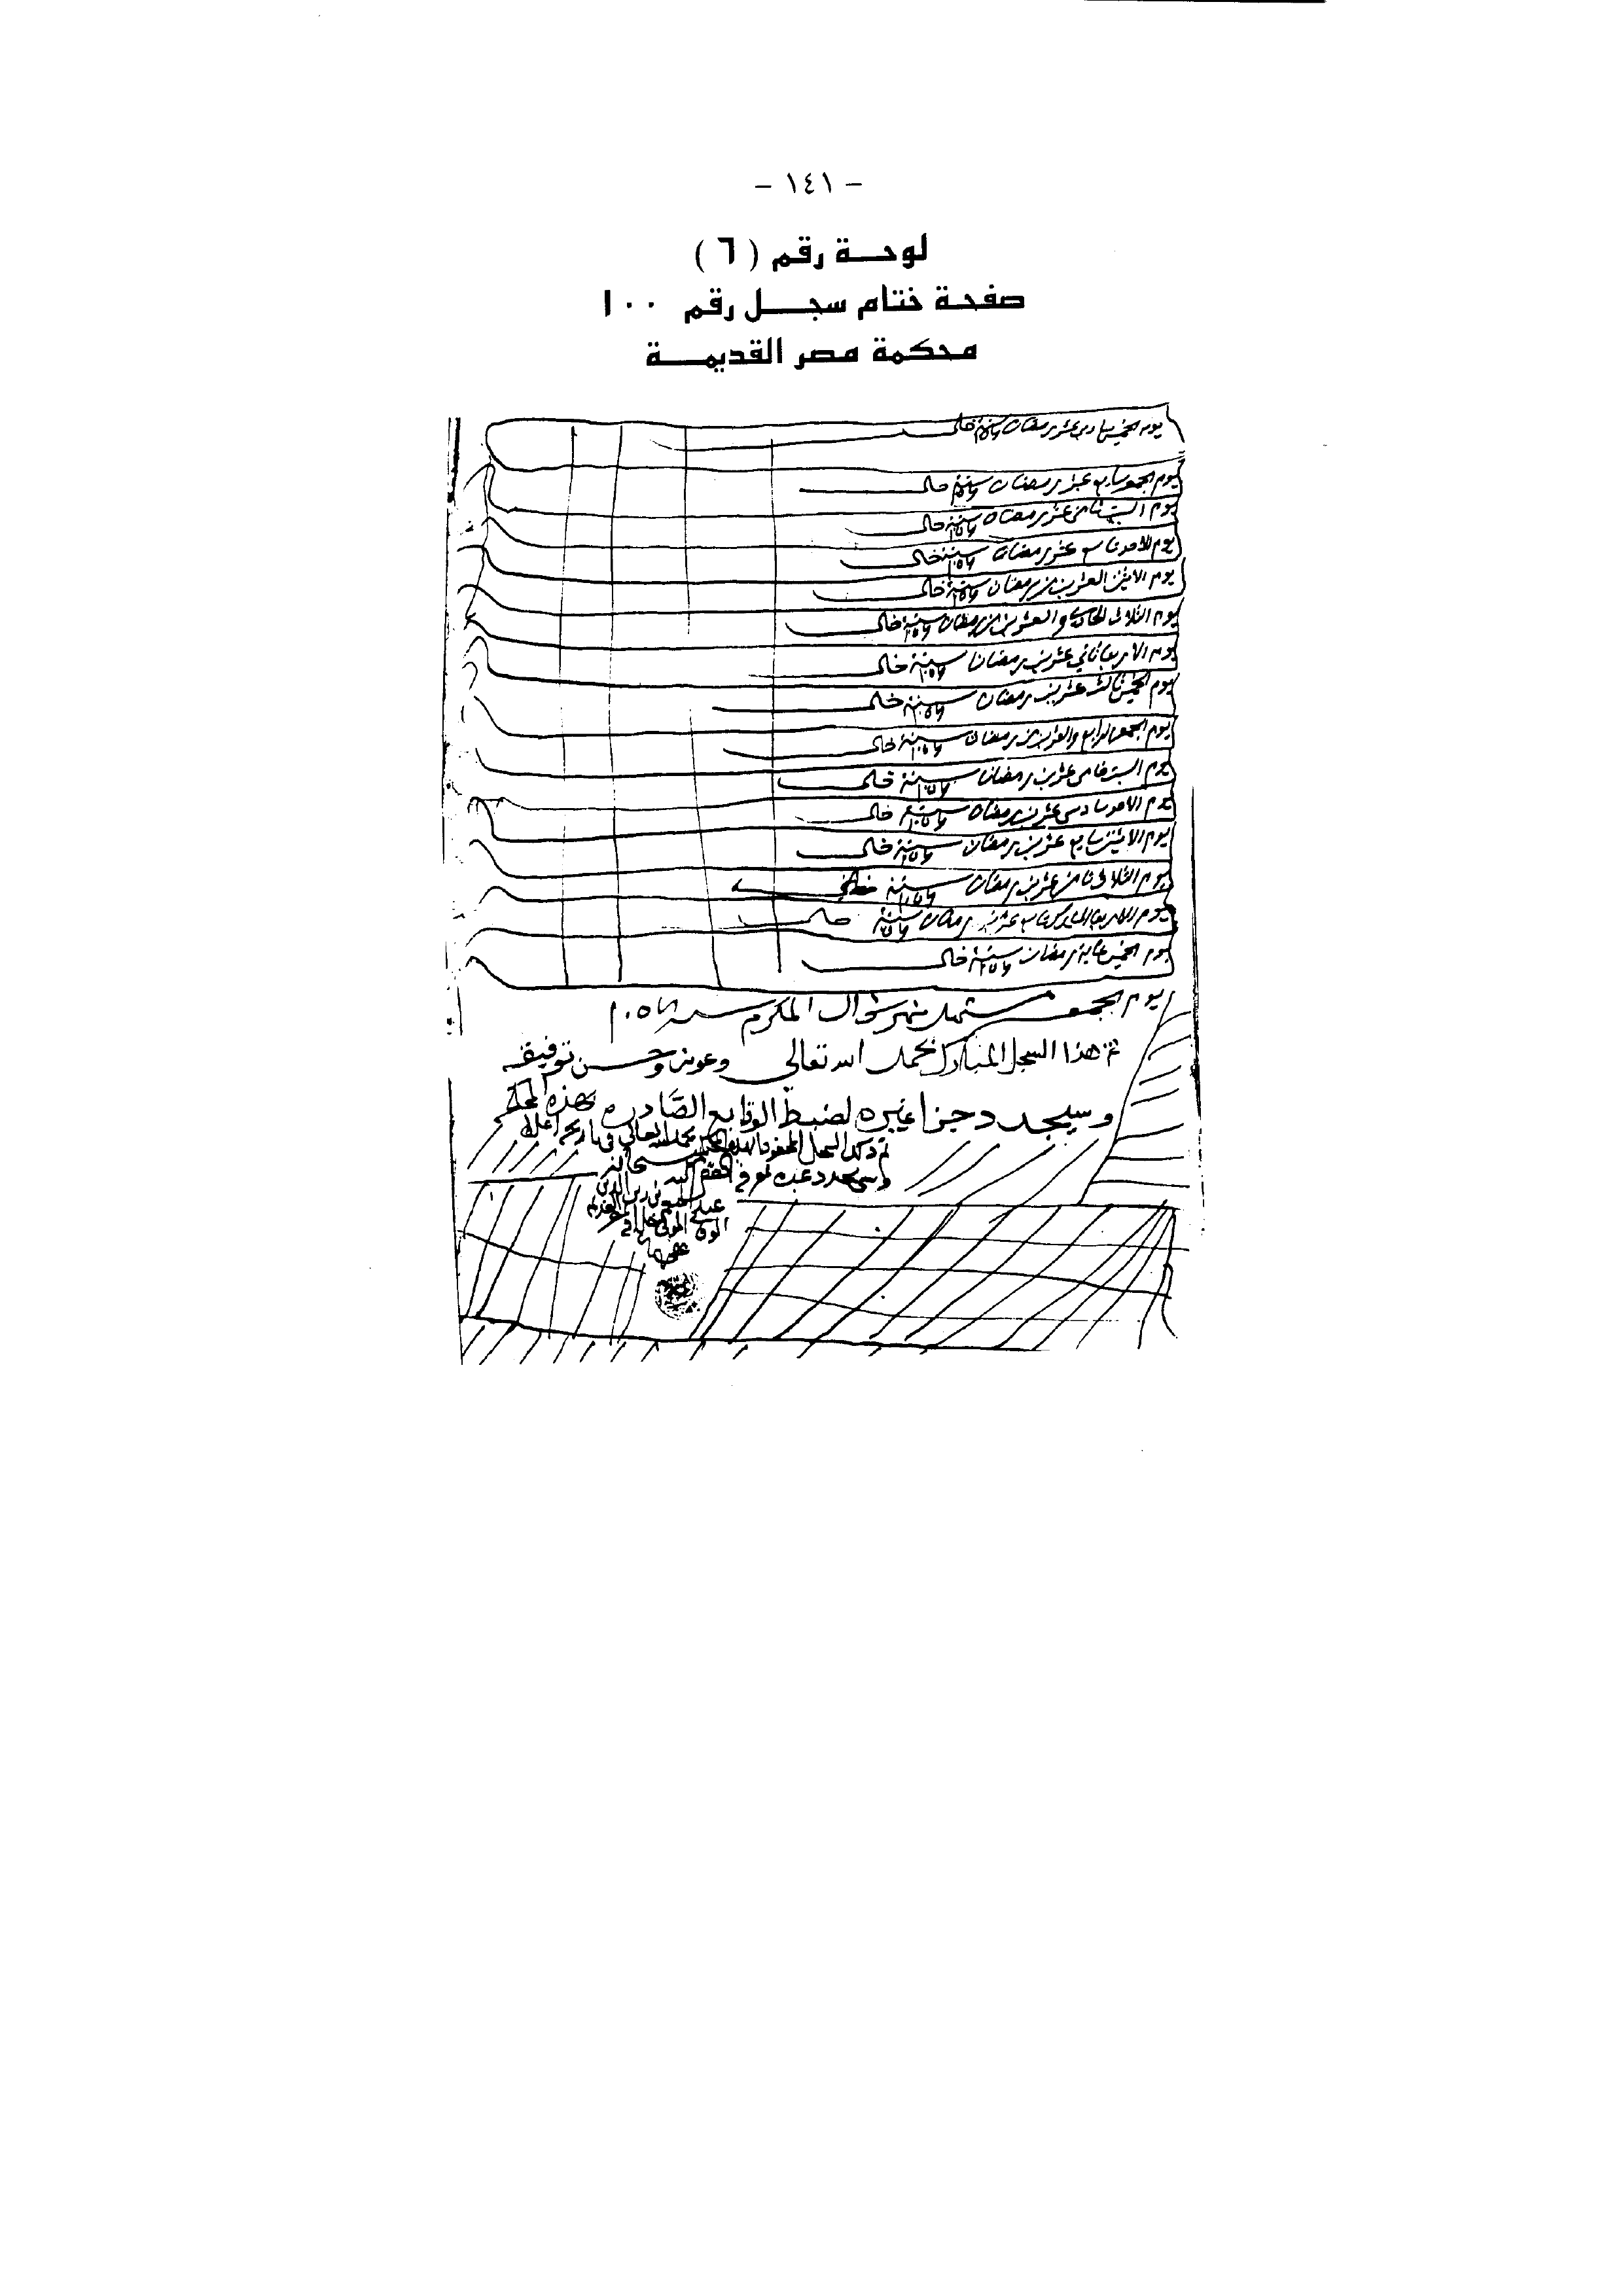 - ١٤١ -
لوحة رقم (٦)
صفحة ختام سجل رقم ١٠٠
محكمة مصر القديمة
يوم الخميس سادس عشر رمضان سنة ١٠٥٦ خالى
يوم الجمعة سابع عشر رمضان سنة ١٠٥٦ خالى
يوم السبت ثامن عشر رمضان سنة ١٠٥٦ خالى
يوم الاحد تاسع عشر رمضان سنة ١٠٥٦ خالى
يوم الاثنين العشرين من رمضان سنة ١٠٥٦ خالى
يوم الثلاثا الحادى والعشرين من رمضان سنة ١٠٥٦ خالى
يوم الاربعا ثانى عشرين رمضان سنة ١٠٥٦ خالى
يوم الخميس ثالث عشرين رمضان سنة ١٠٥٦ خالى
يوم الجمعة الرابع والعشرين من رمضان سنة ١٠٥٦ خالى
يوم السبت خامس عشرين رمضان سنة ١٠٥٦ خالى
يوم الاحد سادس عشرين رمضان سنة ١٠٥٦ خالى
يوم الاثنين سابع عشرين رمضان سنة ١٠٥٦ خالى
يوم الثلاثا ثامن عشرين رمضان سنة ١٠٥٦ خالى
يوم الاربعا المبارك تاسع عشرين رمضان سنة ١٠٥٦ خالى
يوم الخميس غاية رمضان سنة ١٠٥٦ خالى
يوم الجمعة مستهل شهر شوال المكرم سنة ١٠٥٦
تم هذا السجل المبارك بحمد الله تعالى وعونه وحسن توفيقه
وسيجدد دجزا غيره لضبط الوقايع الصادره بهذه المحكمة
تم ذلك السجل المحفوظ بحمد الله تعالى فى تاريخه اعلاه
وسيجدد غيره